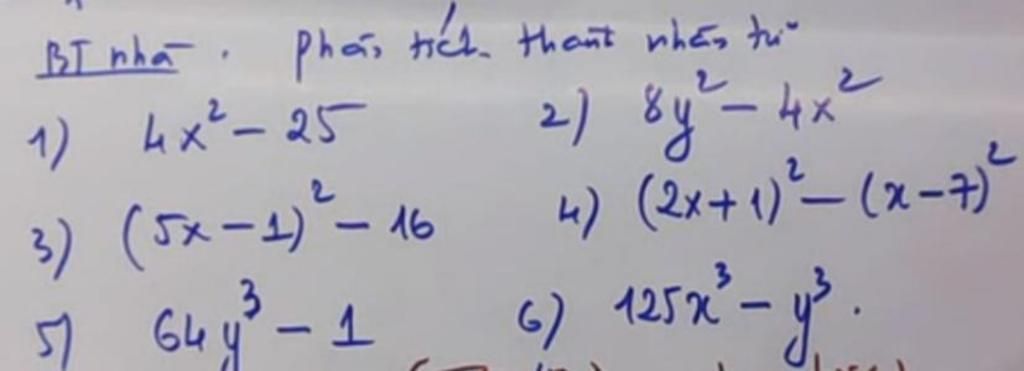 BT nhà. phân tích thành nhân tử
1) 4x² - 25 2) 8y² - 4x²
3) (5x - 1)² - 16 4) (2x + 1)² - (x - 7)²
5) 64y³ - 1 6) 125x³ - y³.